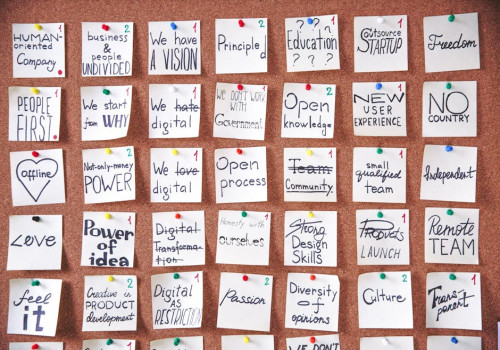 HUMAN-
oriented
Company
2
business
&
people
UNDIVIDED
1
We have
A VISION
2
Principled
? ? ?
Education
? ? ?
1
Outsource
STARTUP
Freedom
PEOPLE
FIRST.
2
We start
from WHY
1
We hate
digital
1
WE DON'T WORK
WITH
Government
2
Open
knowledge
NEW
USER
EXPERIENCE
NO
COUNTRY
offline
2
Not-only-money
POWER
1
We love
digital
1
Open
process
Team
Community
2
small
qualified
team
Independent
Love
2
Power
of idea
Digital
Transforma-
tion
1
Honesty with
ourselves
Strong
Design
Skills
1
Products
LAUNCH
Remote
TEAM
feel
it
2
Creative in
PRODUCT
development
1
Digital
AS
RESTRICTION
2
Passion
Diversity
of
opinions
2
Culture
Trans-
parent
WE DON'T